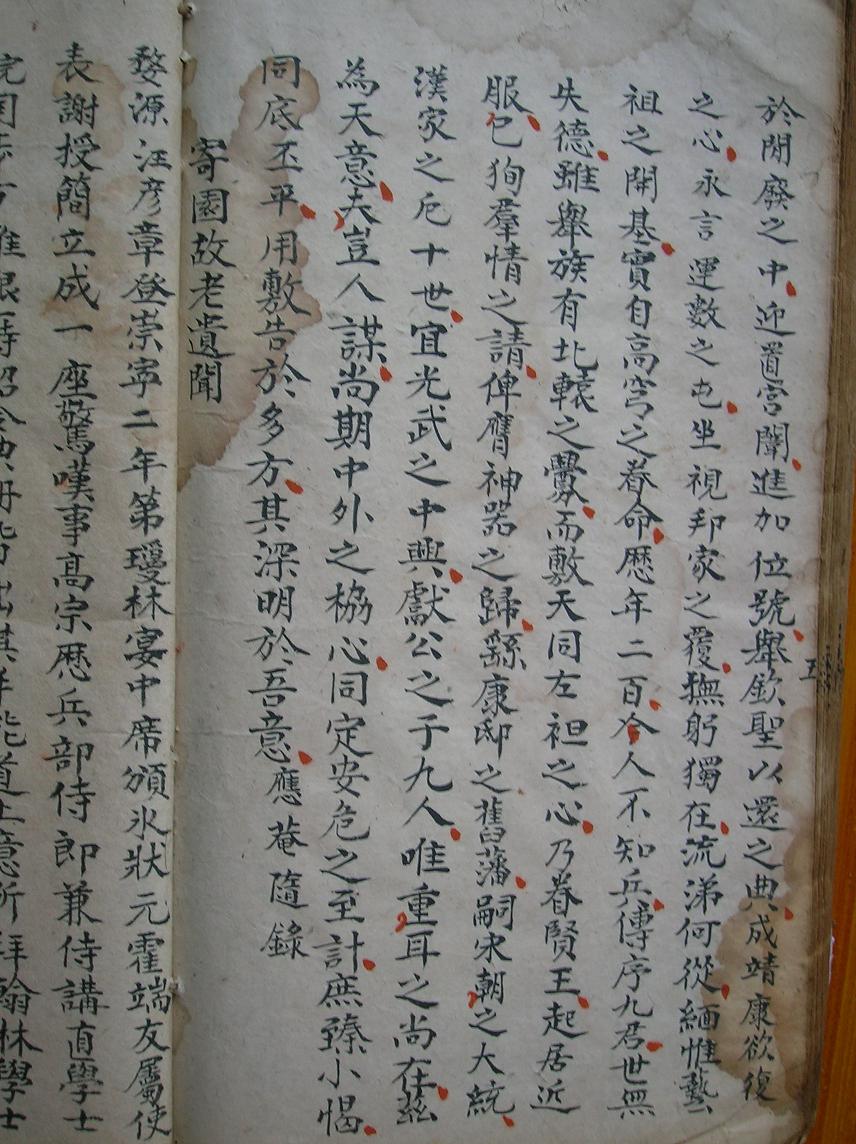 於閒廢之中迎置宮闈進加位號舉欽聖以還之典成靖康欲復
之心永言運數之屯坐視邦家之覆撫躬獨在流涕何從緬惟藝
祖之開基實自高穹之眷命歷年二百今人不知兵傳序九君世無
失德雖舉族有北轅之釁而敷天同左袒之心乃眷賢王起居近
服已狥羣情之請俾膺神器之歸繇康邸之舊藩嗣宋朝之大統
漢家之厄十世宜光武之中興獻公之子九人唯重耳之尚在茲
為天意夫豈人謀尚期中外之協心同定安危之至計庶臻小愒
同底丕平用敷告於多方其深明於吾意應菴隨錄
寄園故老遺聞
婺源汪彥章登崇寧二年第瓊林宴中席頒氷狀元霍端友屬使
表謝授簡立成一座驚嘆事高宗歷兵部侍郎兼侍講直學士
翰林學士
五